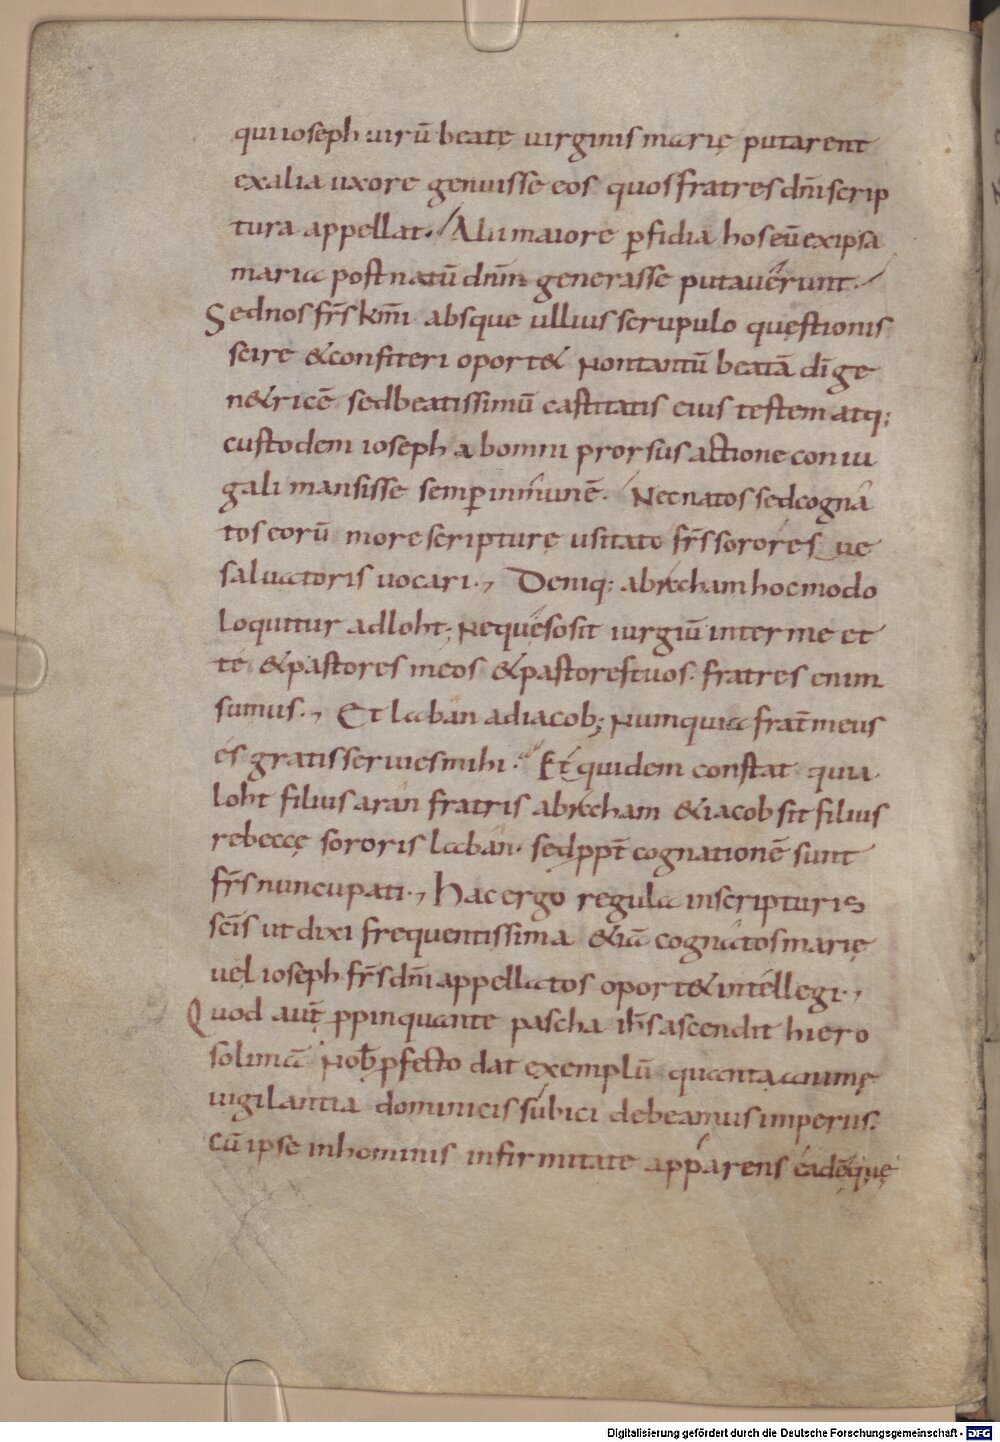 qui ioseph uirū beatę uirginis marię putarent
ex alia uxore genuisse eos quos fratres dn̄i scrip
tura appellat. Alii maiore ꝑfidia hos eū ex ipsa
maria post natū dn̄m generasse putauerunt.
Sed nos fr̄s km̄i absque ullius scrupulo questionis
scire & confiteri oport& Non tantū beatā dī ge
n&ricē sed beatissimū castitatis eius testem atq;
custodem ioseph ab omni prorsus actione coniu
gali mansisse semꝑ inmunē. Nec natos sed cogna
tos eorū more scripturę usitato fr̄s sorores ue
saluatoris uocari., Deniq; abraham hoc modo
loquitur ad loht; Ne quęso sit iurgiū inter me et
te & pastores meos & pastores tuos. fratres enim
sumus., Et laban ad iacob; Num quia frat̄ meus
es gratis seruies mihi. Et quidem constat quia
loht filius aran fratris abraham & iacob sit filius
rebeccę sororis laban. sed ppt̄ cognationē sunt
fr̄s nuncupati., Hac ergo regula in scripturis
sc̄is ut dixi frequentissima &iā cognatos marię
uel ioseph fr̄s dn̄i appellatos oport& intellegi.,
Quod aut̄ ppinquante pascha ih̄s ascendit hiero
solimā Nob̄ ꝓfecto dat exemplū quanta animę
uigilantia dominicis subici debeamus imperiis.
Cū ipse in hominis infirmitate apparens eadē quę
Digitalisierung gefördert durch die Deutsche Forschungsgemeinschaft - DFG